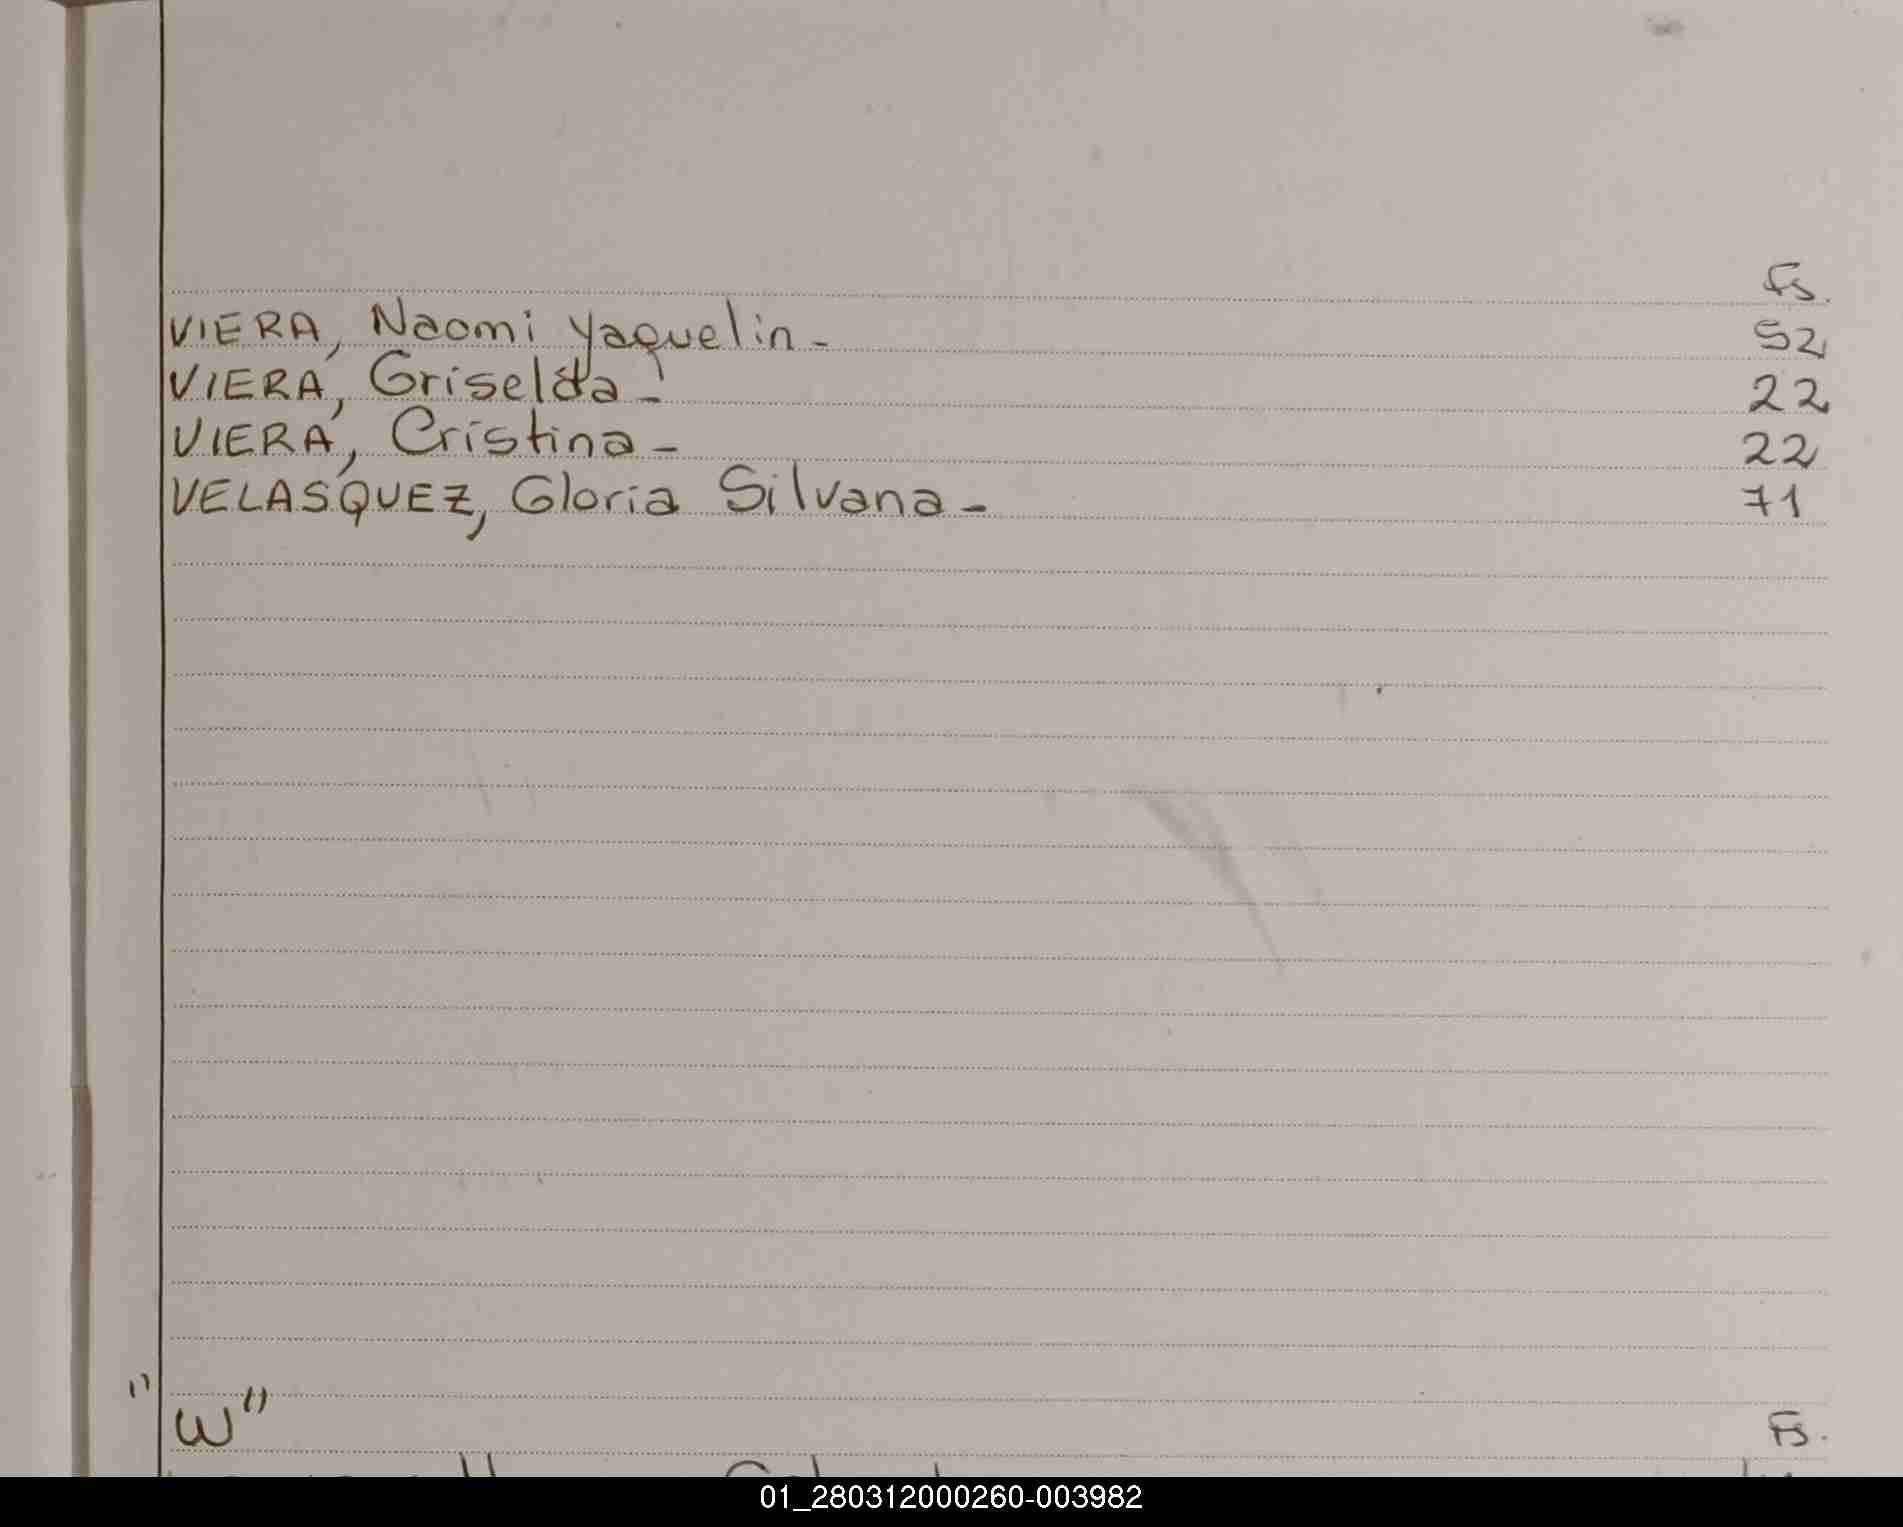 Fs.
VIERA, Naomi Yaquelin - 52
VIERA, Griselda - 22
VIERA, Cristina - 22
VELASQUEZ, Gloria Silvana - 71
"W" Fs.
01_280312000260-003982